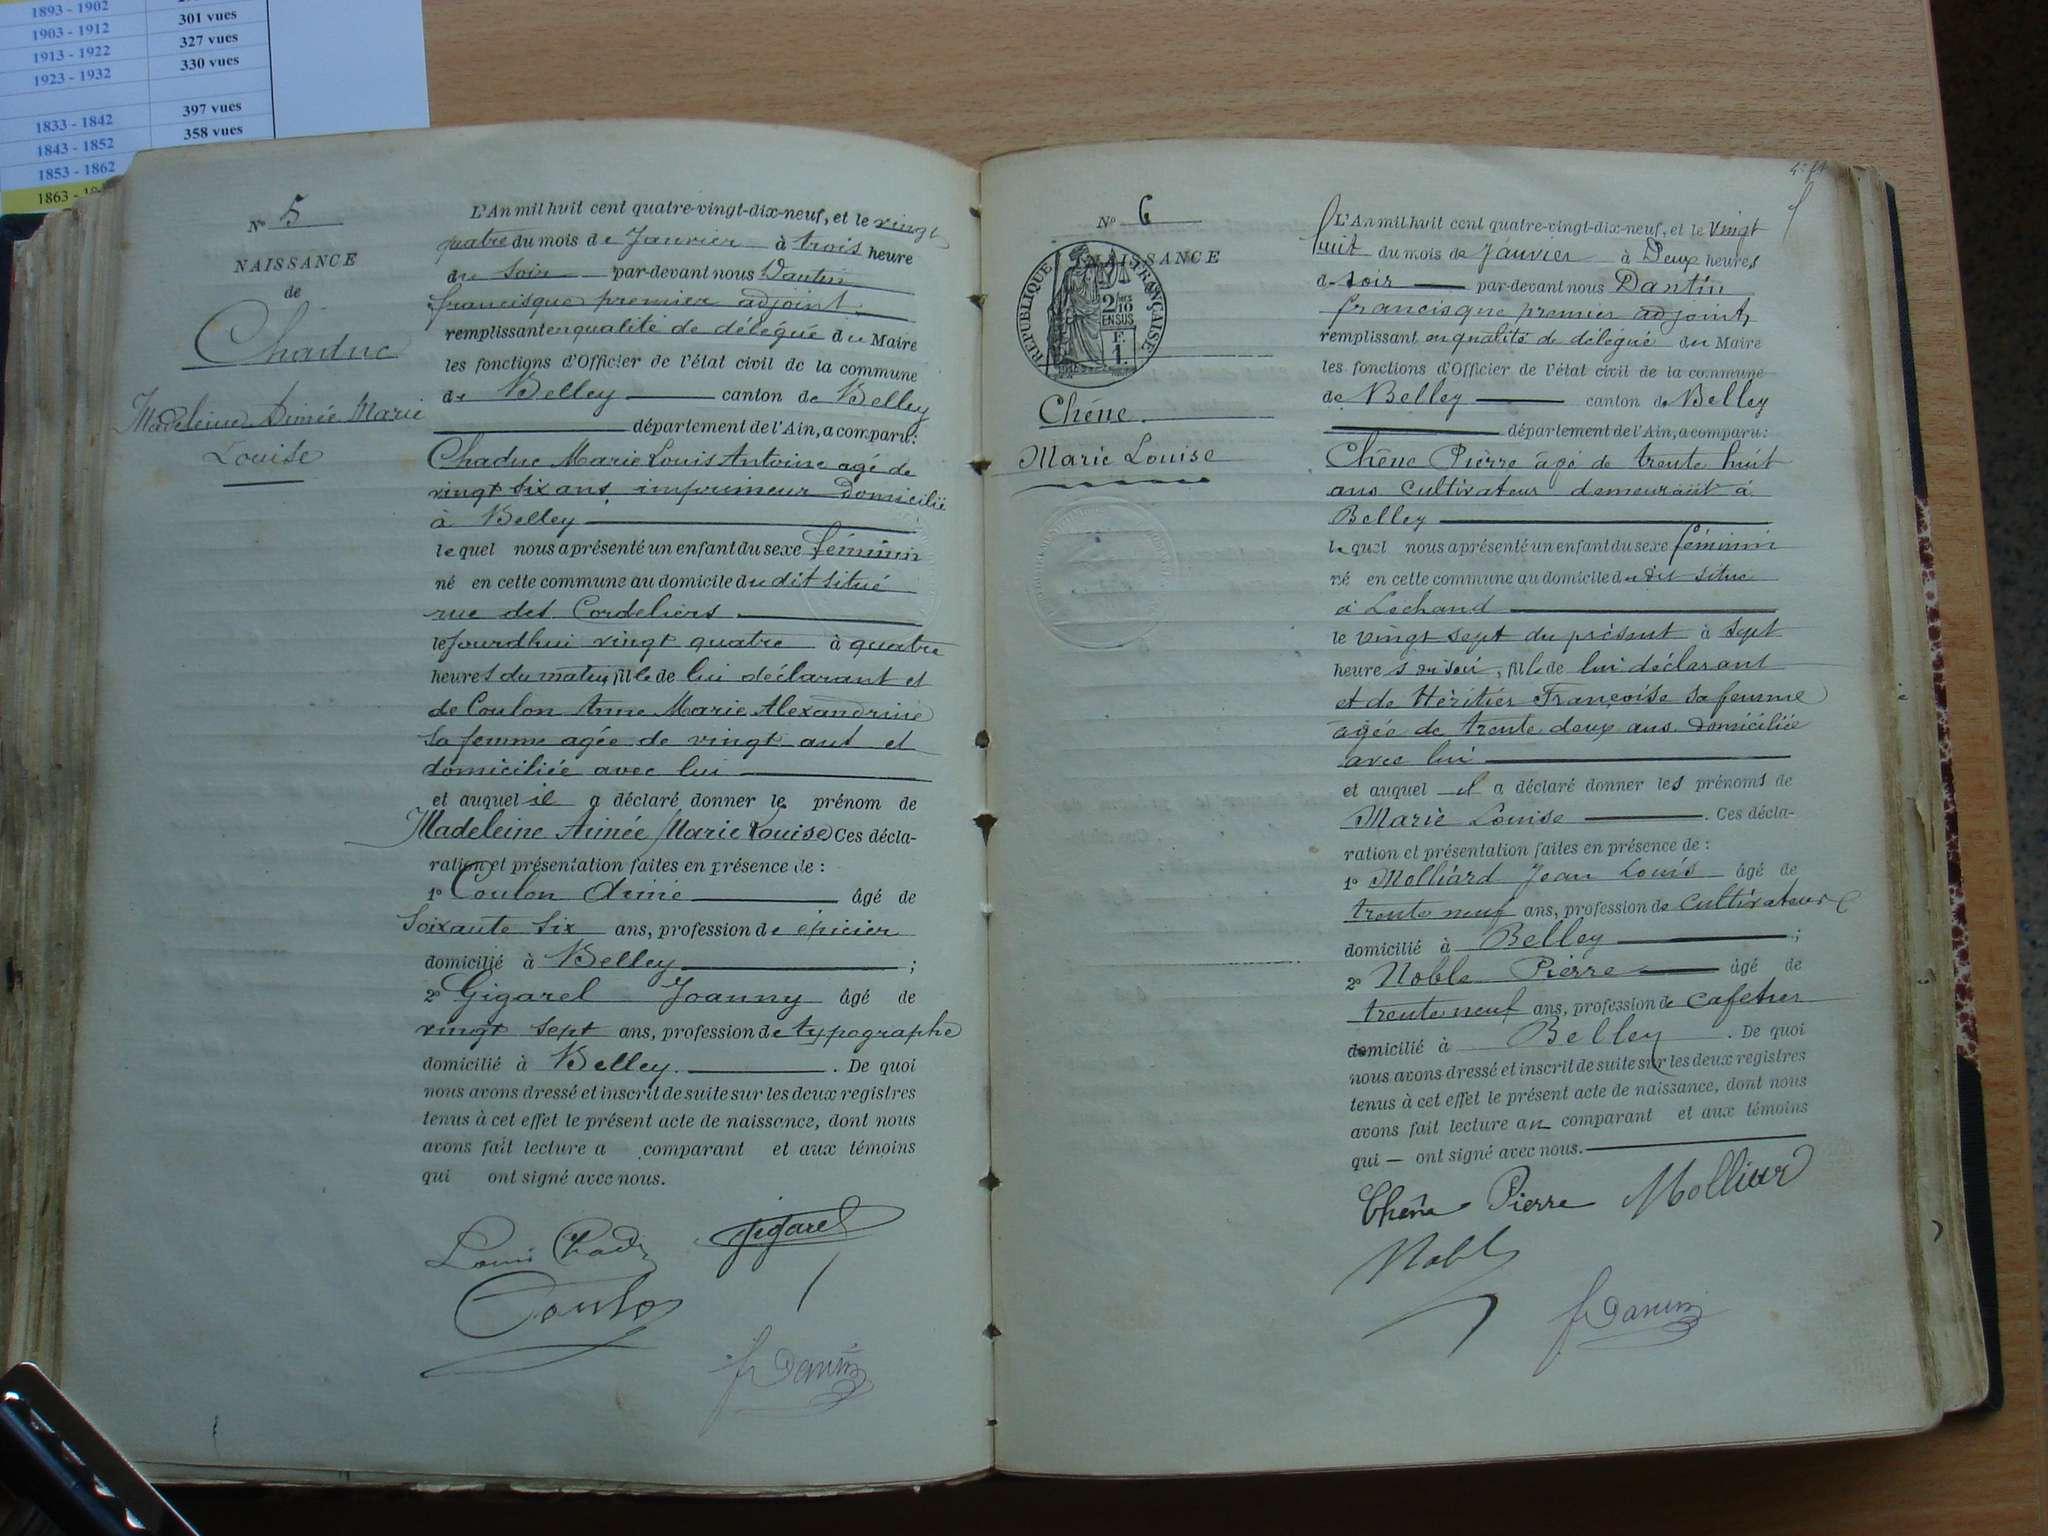 1893 - 1902
1903 - 1912 301 vues
1913 - 1922 327 vues
1923 - 1932 330 vues
1833 - 1842 397 vues
1843 - 1852 358 vues
1853 - 1862
1863 -
N° 5
NAISSANCE
de
Chaduc
Madeleine Aimée Marie
Louise
L'An mil huit cent quatre-vingt-dix-neuf, et le vingt
quatre du mois de Janvier à trois heure
du soir par-devant nous Dantin
francisque premier adjoint
remplissant en qualité de délégué du Maire
les fonctions d'Officier de l'état civil de la commune
de Belley canton de Belley
département de l'Ain, a comparu:
Chaduc Marie Louis Antoine agé de
vingt six ans imprimeur domicilié
à Belley
lequel nous a présenté un enfant du sexe féminin
né en cette commune au domicile du dit situé
rue des Cordeliers
le jourdhui vingt quatre à quatre
heures du matin, fille de lui déclarant et
de Coulon Anne Marie Alexandrine
sa femme agée de vingt ans et
domiciliée avec lui
et auquel il a déclaré donner les prénom de
Madeleine Aimée Marie Louise Ces décla-
ration et présentation faites en présence de :
1° Coulon Aimé âgé de
soixante six ans, profession de épicier
domicilié à Belley ;
2° Gigarel Joanny âgé de
vingt sept ans, profession de typographe
domicilié à Belley . De quoi
nous avons dressé et inscrit de suite sur les deux registres
tenus à cet effet le présent acte de naissance, dont nous
avons fait lecture a comparant et aux témoins
qui ont signé avec nous.
Louis Chaduc Gigarel
Coulon
f Dantin
N° 6
NAISSANCE
RÉPUBLIQUE FRANÇAISE
2/10
EN SUS
F.
1.
Chêne
Marie Louise
L'An mil huit cent quatre-vingt-dix-neuf, et le vingt
huit du mois de Janvier à Deux heures
de soir par-devant nous Dantin
francisque premier adjoint,
remplissant en qualité de délégué du Maire
les fonctions d'Officier de l'état civil de la commune
de Belley canton de Belley
département de l'Ain, a comparu:
Chêne Pierre âgé de trente huit
ans Cultivateur demeurant à
Belley
lequel nous a présenté un enfant du sexe féminin
né en cette commune au domicile du dit situé
à Lechaud
le vingt sept du présent à sept
heures du soir, fille de lui déclarant
et de Héritier Françoise sa femme
âgée de trente deux ans domiciliée
avec lui
et auquel il a déclaré donner les prénoms de
Marie Louise . Ces décla-
ration et présentation faites en présence de :
1° Molliard Jean Louis âgé de
trente neuf ans, profession de cultivateur
domicilié à Belley ;
2° Noble Pierre âgé de
trente neuf ans, profession de cafetier
domicilié à Belley . De quoi
nous avons dressé et inscrit de suite sur les deux registres
tenus à cet effet le présent acte de naissance, dont nous
avons fait lecture au comparant et aux témoins
qui — ont signé avec nous.
Chêne Pierre Molliard
Noble
f Dantin